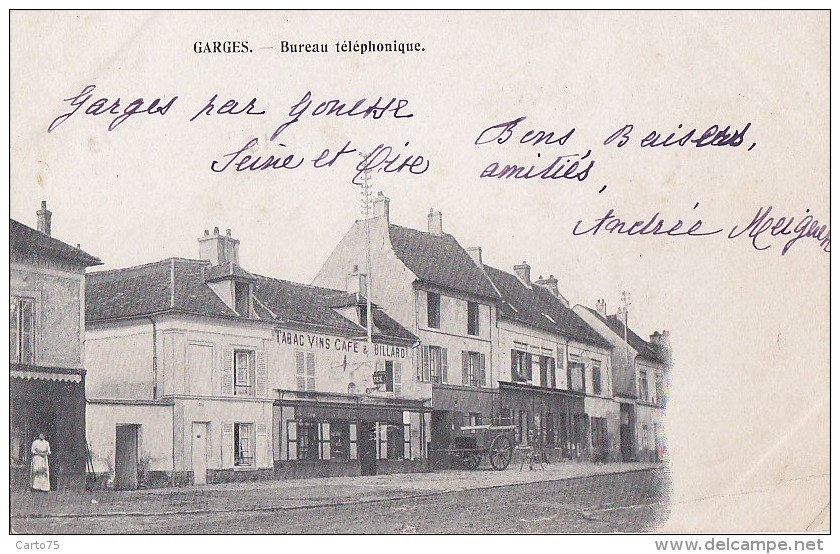 GARGES. — Bureau téléphonique.
Garges par Gonesse
Seine et Oise
Bons Baisers,
amitiés,
Andrée
TABAC VINS CAFE & BILLARD
Carto75
www.delcampe.net